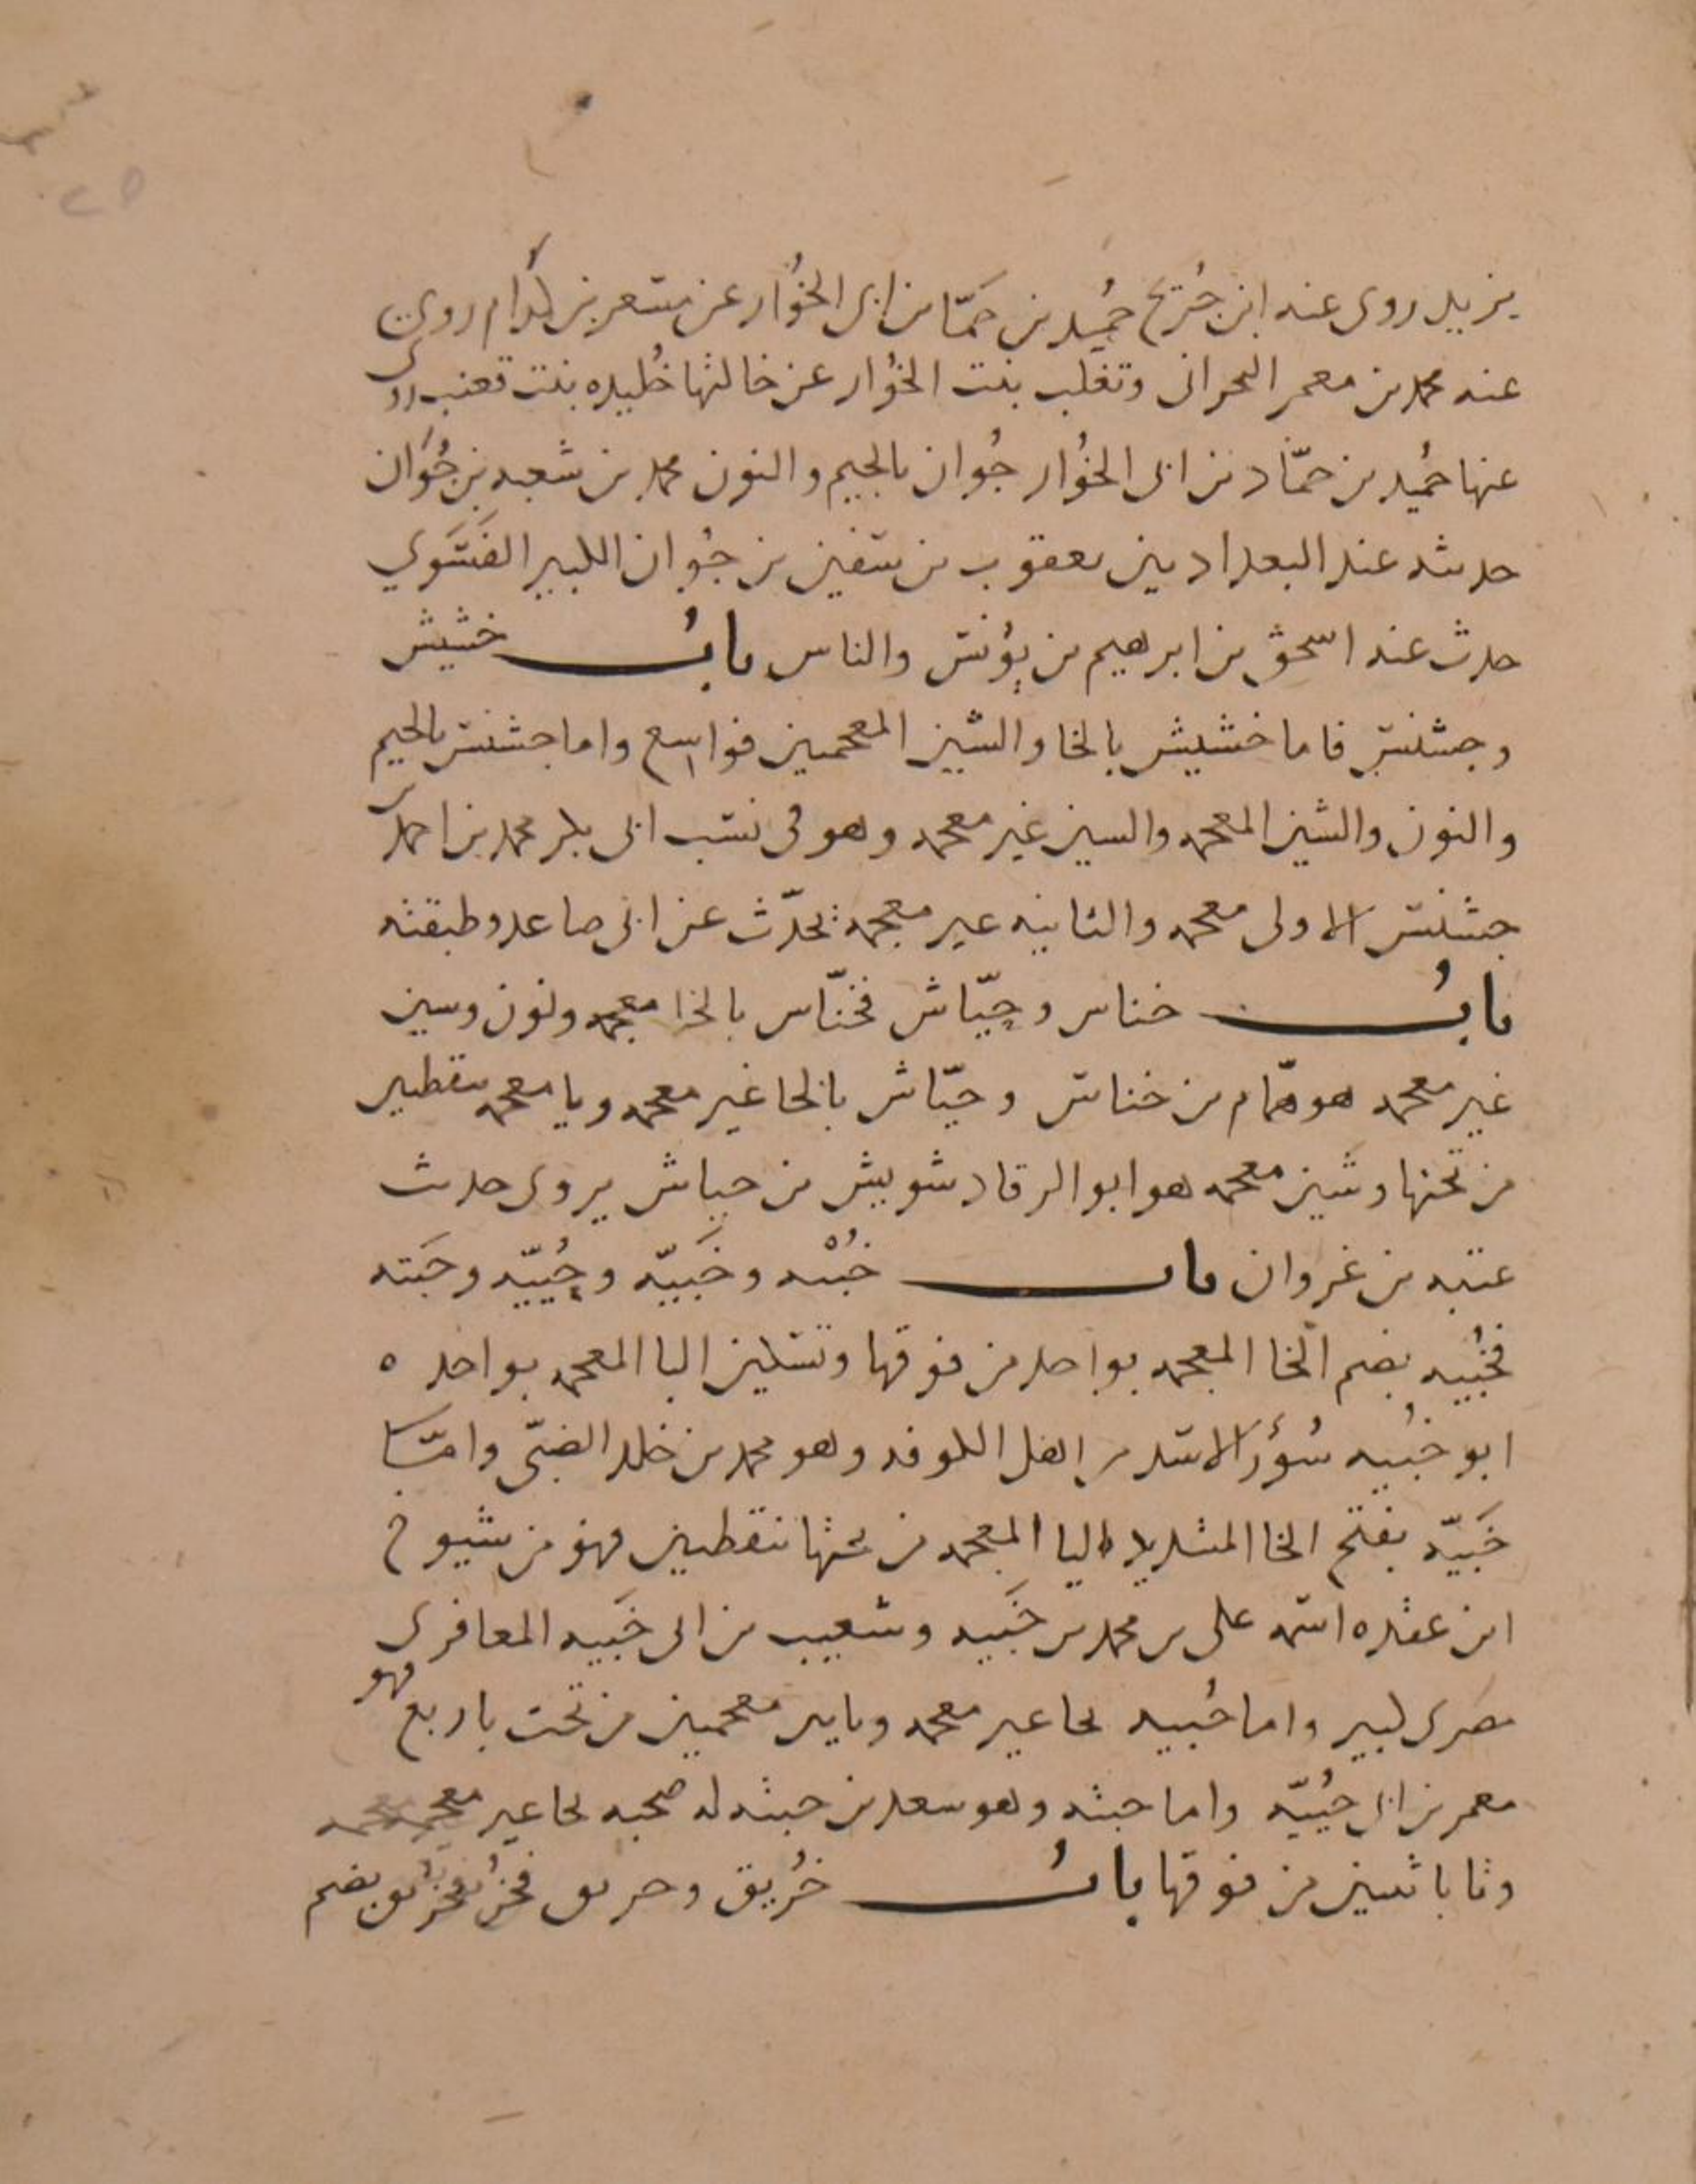 يزيد روى عنه ابن جُريج حُميد بن حمّاد بن ابى الخُوار عن مسعر بن كدام روى
عنه محمد بن معمر البحرانى وتغلب بنت الخُوار عن خالتها خُليده بنت قعنب روى
عنها حُميد بن حمّاد بن ابى الخُوار جُوان بالجيم والنون محمد بن شعبه بن جُوَان
حديثه عند البغداديين يعقوب بن سفين بن جُوان الكبير الفَسَوي
حدث عنه اسحق بن ابرهيم بن يُونس والناس بابُ خشيش
وجشنس فاما خشيش بالخا والشين المعجمين فواسع واما جشنس بالجيم
والنون والشين المعجمه والسين غير معجمه وهو فى نسب ابى بكر محمد بن احمد بن
جشنس الاولى معجمه والثانيه غير معجمه يحدّث عن ابى صاعد وطبقته
بابُ خناس وحيّاش فخنّاس بالخا معجمه ونون وسين
غير معجمه هو همّام بن خناس وحيّاش بالحا غير معجمه ويا معجمه بنقطتين
من تحتها وشين معجمه هو ابو الرقاد شويش بن حياش يروى حديث
عتبه بن غزوان باب خُبْيه وخَبيّه وحُييّه وحَبته
فخُبيه بضم الخا المعجمه بواحد من فوقها وتسكين البا المعجمه بواحده
ابو خبيه سُؤر الاسد من اهل الكوفه وهو محمد بن خلد الضبّى وامّا
خَبيّه بفتح الخا المشديد اليا المعجمه من تحتها بنقطتين فهو من شيوخ
ابن عقده اسمه على بن محمد بن خَبيه وشعيب بن ابى خَبيه المعافرى
مصرى كبير واما حُييه بحا غير معجمه وبايين معجمين من تحت باربع فهو
معمر بن ابى حُييّه واما حبته وهو سعد بن حبته له صحبه بحا غير معجمه
وتا باثنين من فوقها بابُ خُريق وحريق فخُريق بضم